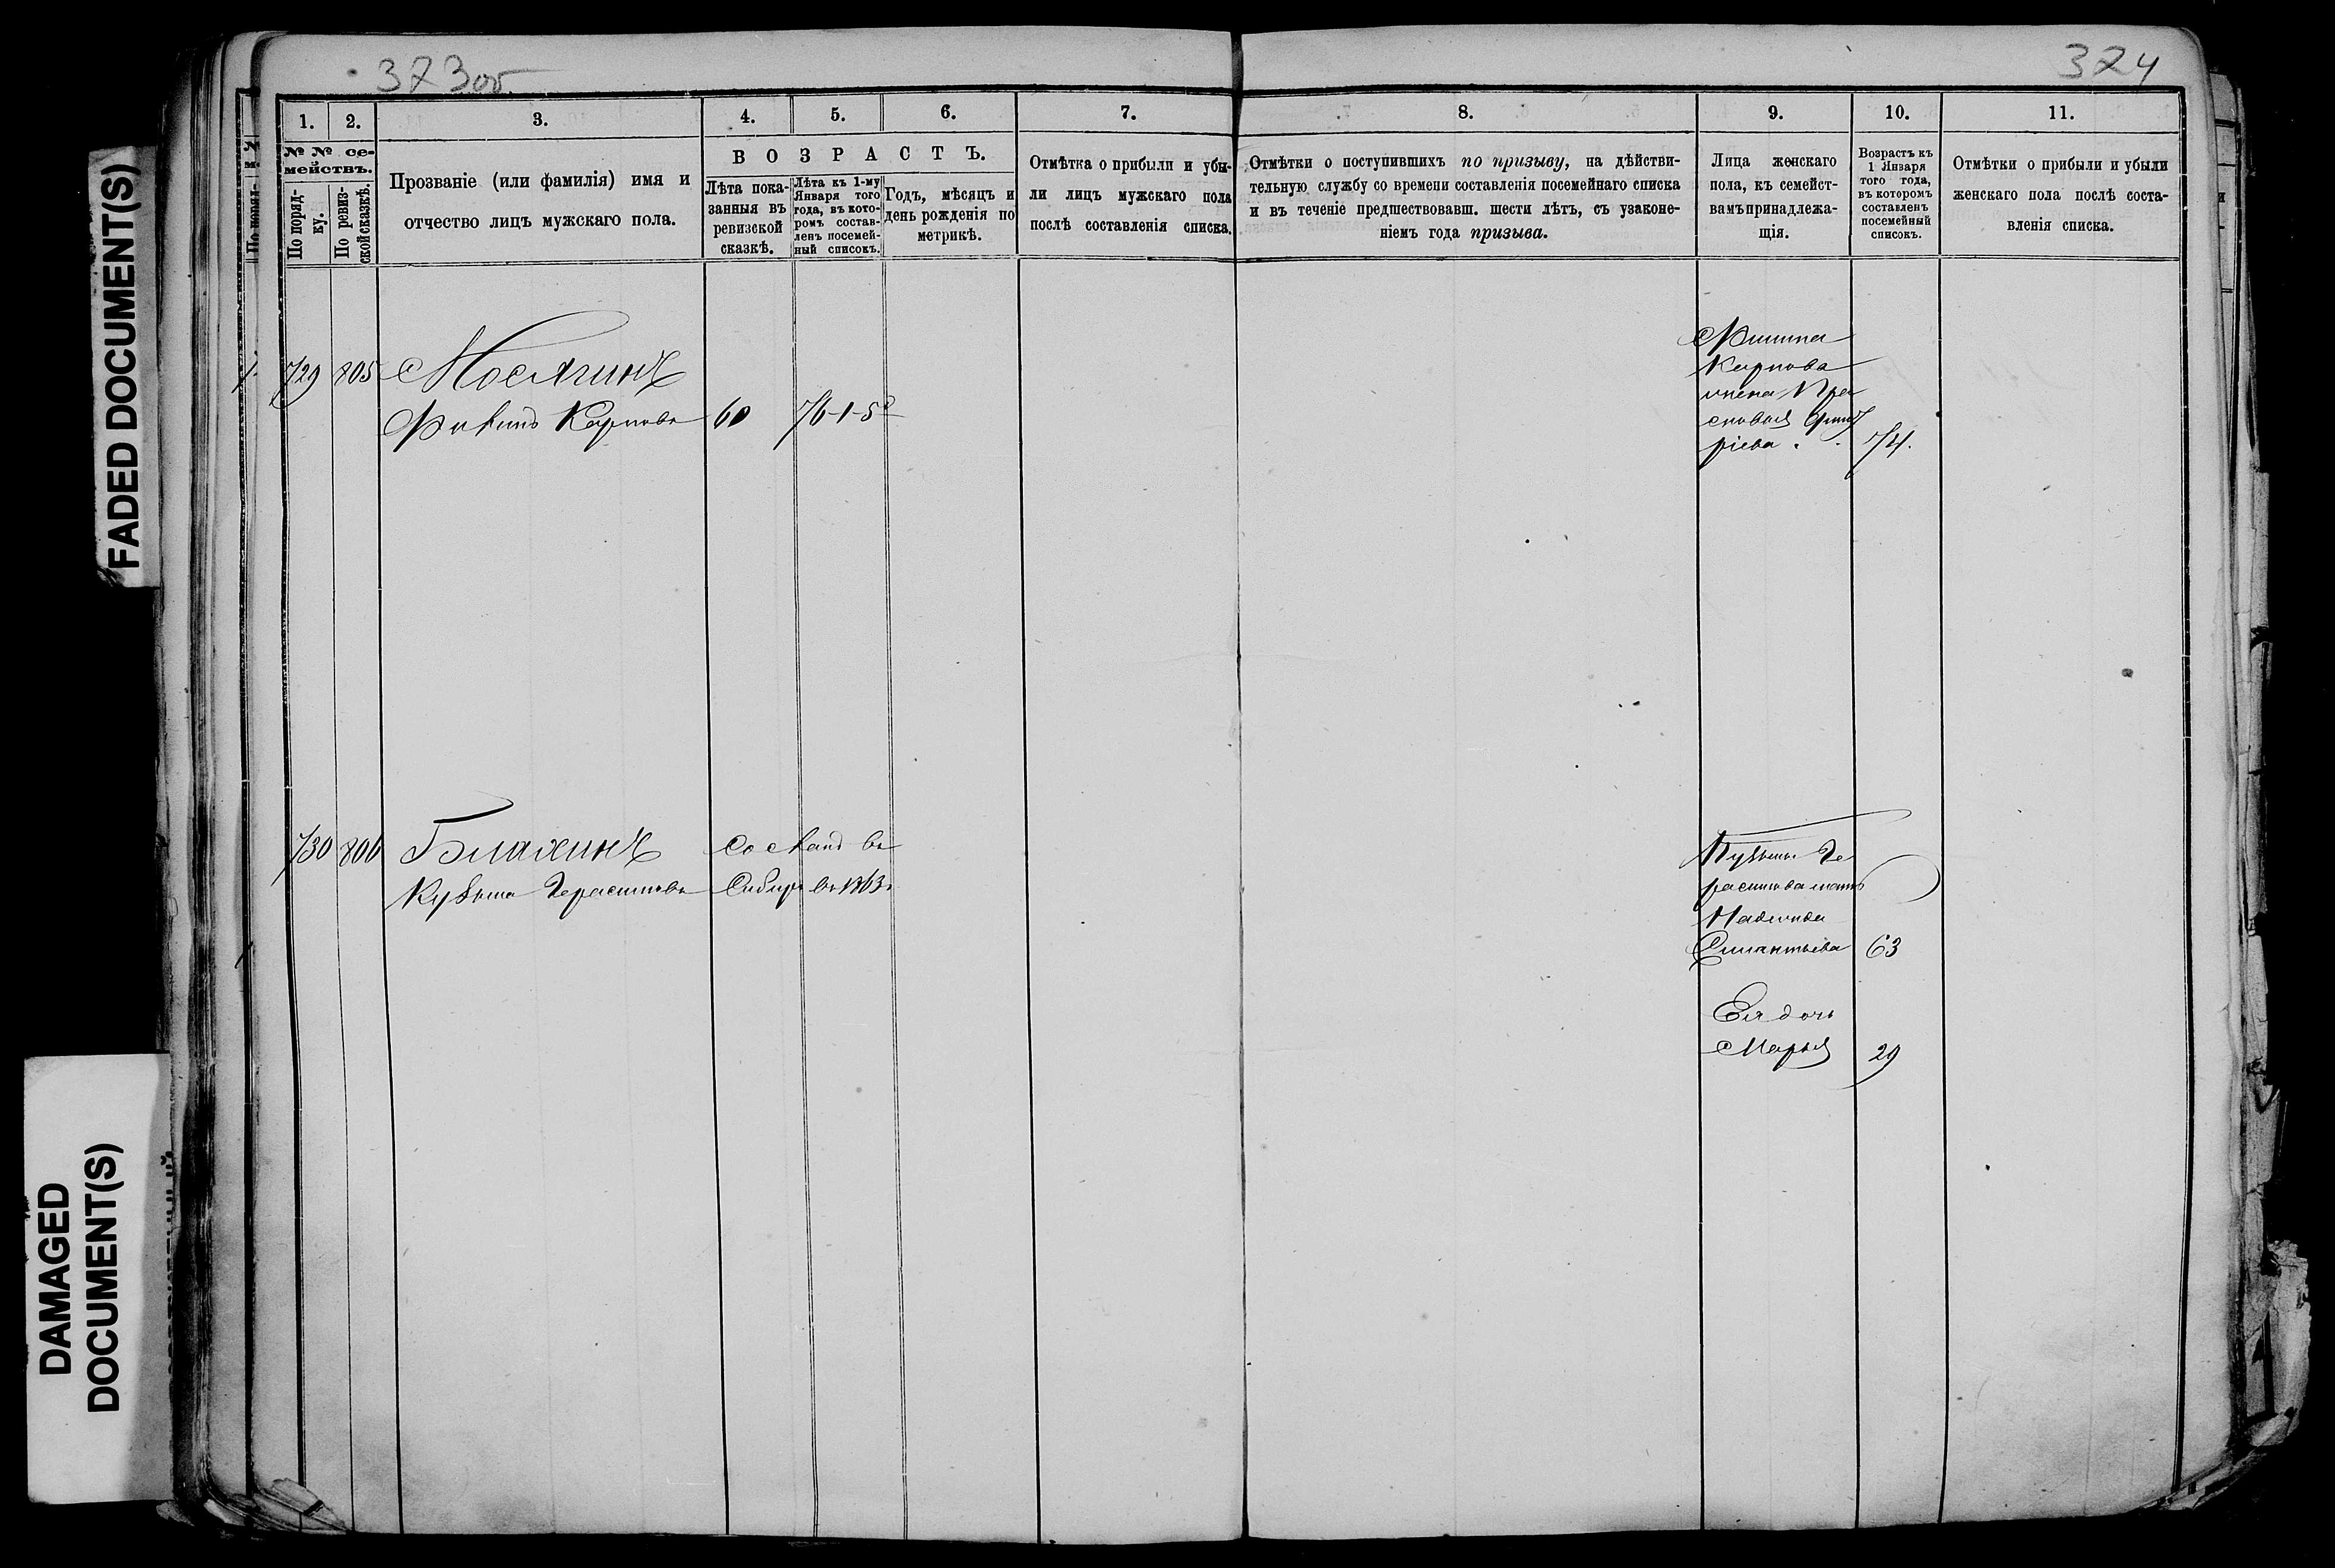 373 об.
324
FADED DOCUMENT(S)
DAMAGED
DOCUMENT(S)
1.
2.
3.
4.
5.
6.
7.
8.
9.
10.
11.
№ № се-
мействъ.
По поряд-
ку.
По ревиз-
ской сказкѣ.
Прозваніе (или фамилія) имя и
отчество лицъ мужскаго пола.
ВОЗРАСТЪ.
Лѣта пока-
занныя въ
ревизской
сказкѣ.
Лѣта къ 1-му
Января того
года, въ кото-
ромъ состав-
ленъ посемей-
ный списокъ.
Годъ, мѣсяцъ и
день рожденія по
метрикѣ.
Отмѣтка о прибыли и убы-
ли лицъ мужскаго пола
послѣ составленія списка.
Отмѣтки о поступившихъ по призыву, на дѣйстви-
тельную службу со времени составленія посемейнаго списка
и въ теченіе предшествовавш. шести лѣтъ, съ узаконе-
ніемъ года призыва.
Лица женскаго
пола, къ семейст-
вамъ принадлежа-
щія.
Возрастъ къ
1 Января
того года,
въ которомъ
составленъ
посемейный
списокъ.
Отмѣтки о прибыли и убыли
женскаго пола послѣ соста-
вленія списка.
729 805
Карповъ 60 76-1-5
Карпова
жена Пра
сковья
74.
730 806
Кузьма Герасимовъ
Сосланъ въ
Сибирь въ 1863
Кузьмы Ге
расимова мать
Надежда
63
Ея дочь
Марья 29